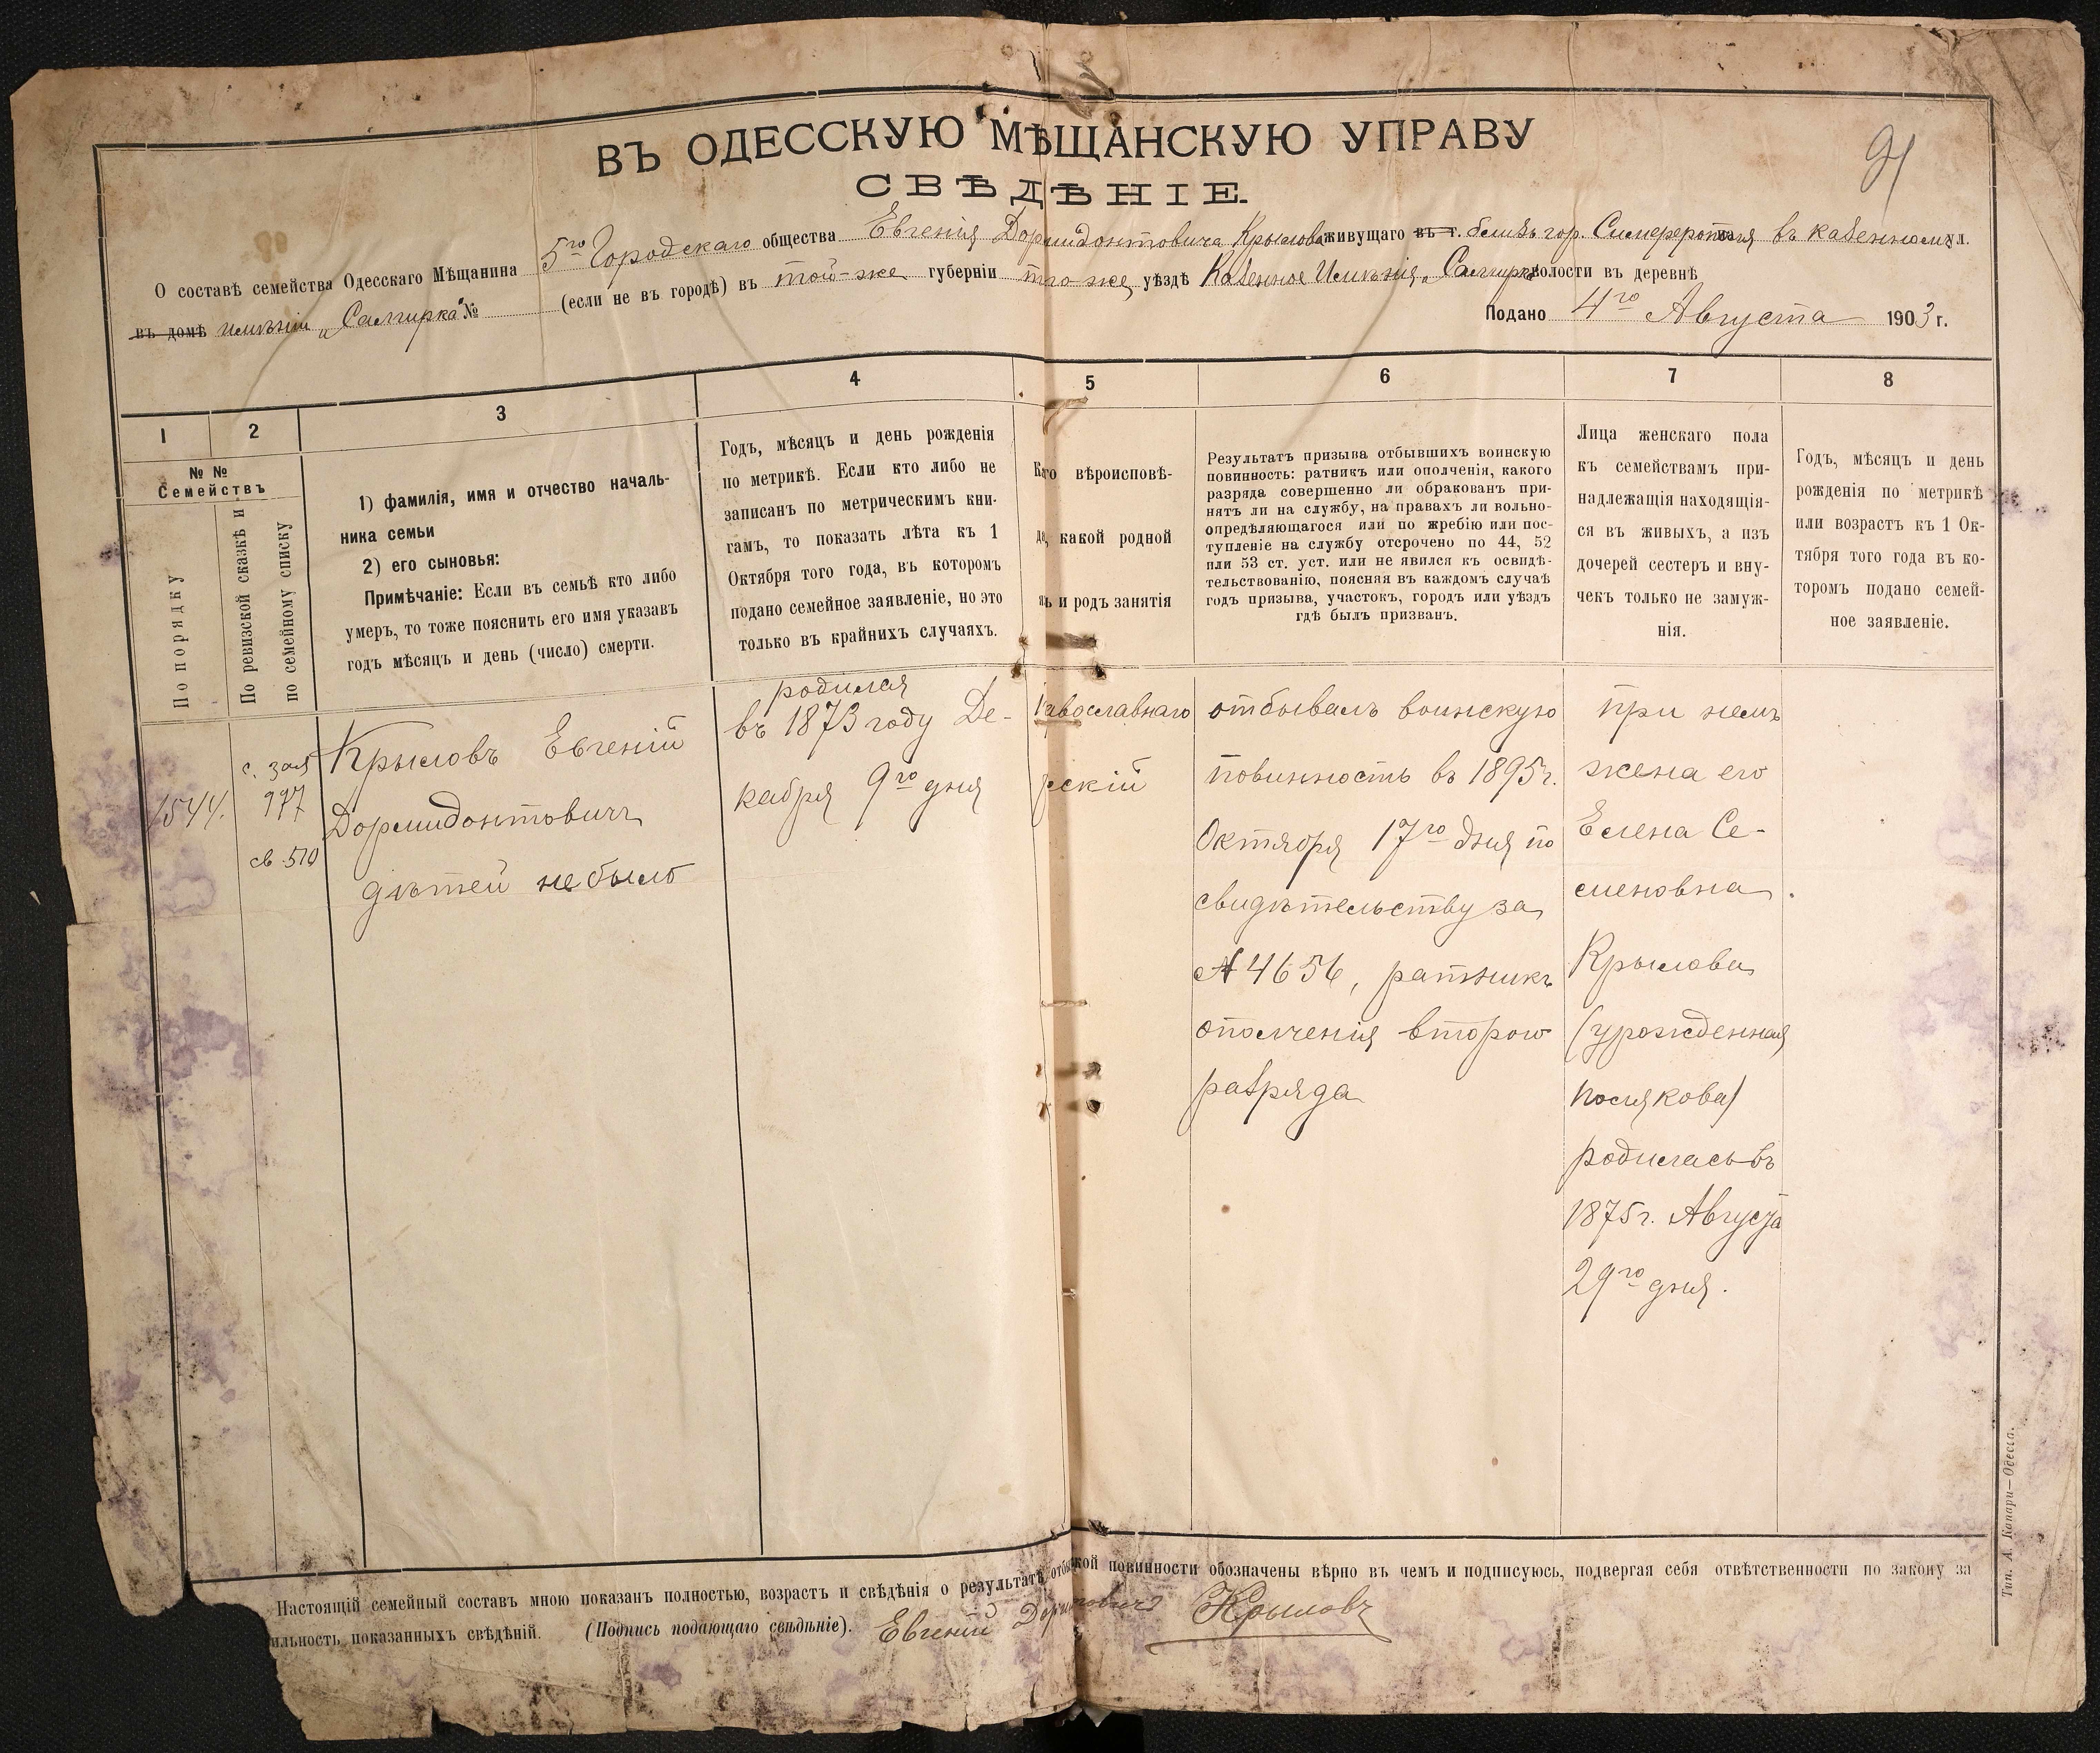 ВЪ ОДЕССКУЮ МѢЩАНСКУЮ УПРАВУ
91
СВѢДѢНІЕ.
О составѣ семейства Одесскаго Мѣщанина 5го Городскаго общества Евгенія Дормидонтовича Крылова живущаго въ г. близь гор. Симферополя въ казенномъ ул.
въ домѣ имѣніи „Салгирка" № (если не въ городѣ) въ той-же губерніи то-же уѣздѣ Казенное Имѣнія „Салгирка волости въ деревнѣ
Подано 4го Августа 1903 г.
1
2
3
4
5
6
7
8
№ №
Семействъ
По порядку
По ревизской сказкѣ и
по семейному списку
1) фамилія, имя и отчество началь-
ника семьи
2) его сыновья:
Примѣчаніе: Если въ семьѣ кто либо
умеръ, то тоже пояснить его имя указавъ
годъ мѣсяцъ и день (число) смерти.
Годъ, мѣсяцъ и день рожденія
по метрикѣ. Если кто либо не
записанъ по метрическимъ кни-
гамъ, то показать лѣта къ 1
Октября того года, въ которомъ
подано семейное заявленіе, но это
только въ крайнихъ случаяхъ.
Каго вѣроисповѣ-
да, какой родной
яз и родъ занятія
Результатъ призыва отбывшихъ воинскую
повинность: ратникъ или ополченія, какого
разряда совершенно ли обракованъ при-
нятъ ли на службу, на правахъ ли вольно-
опредѣляющагося или по жребію или пос-
тупленіе на службу отсрочено по 44, 52
или 53 ст. уст. или не явился къ освидѣ-
тельствованію, поясняя въ каждомъ случаѣ
годъ призыва, участокъ, городъ или уѣздъ
гдѣ былъ призванъ.
Лица женскаго пола
къ семействамъ при-
надлежащія находящія-
ся въ живыхъ, а изъ
дочерей сестеръ и вну-
чекъ только не замуж-
нія.
Годъ, мѣсяцъ и день
рожденія по метрикѣ
или возрастъ къ 1 Ок-
тября того года въ ко-
торомъ подано семей-
ное заявленіе.
1544.
977
св 510
Крыловъ Евгеній
Дормидонтовичъ
дѣтей не было
родился
въ 1873 году Де-
кабря 9го дня
Православнаго
рскій
отбывалъ воинскую
повинность въ 1895г.
Октября 17го дня по
свидѣтельству за
№ 4656, ратникъ
ополченія второго
разряда
При немъ
жена его
Елена Се-
меновна
Крылова
(урожденная
Полякова)
родилась въ
1875г. Августа
29го дня.
Настоящій семейный составъ мною показанъ полностью, возрастъ и свѣдѣнія о результатѣ отбы кой повинности обозначены вѣрно въ чемъ и подписуюсь, подвергая себя отвѣтственности по закону за
ильность показанныхъ свѣдѣній. (Подпись подающаго свѣдѣніе). Евгеній Крыловъ
Тип. А. Копари—Одесса.